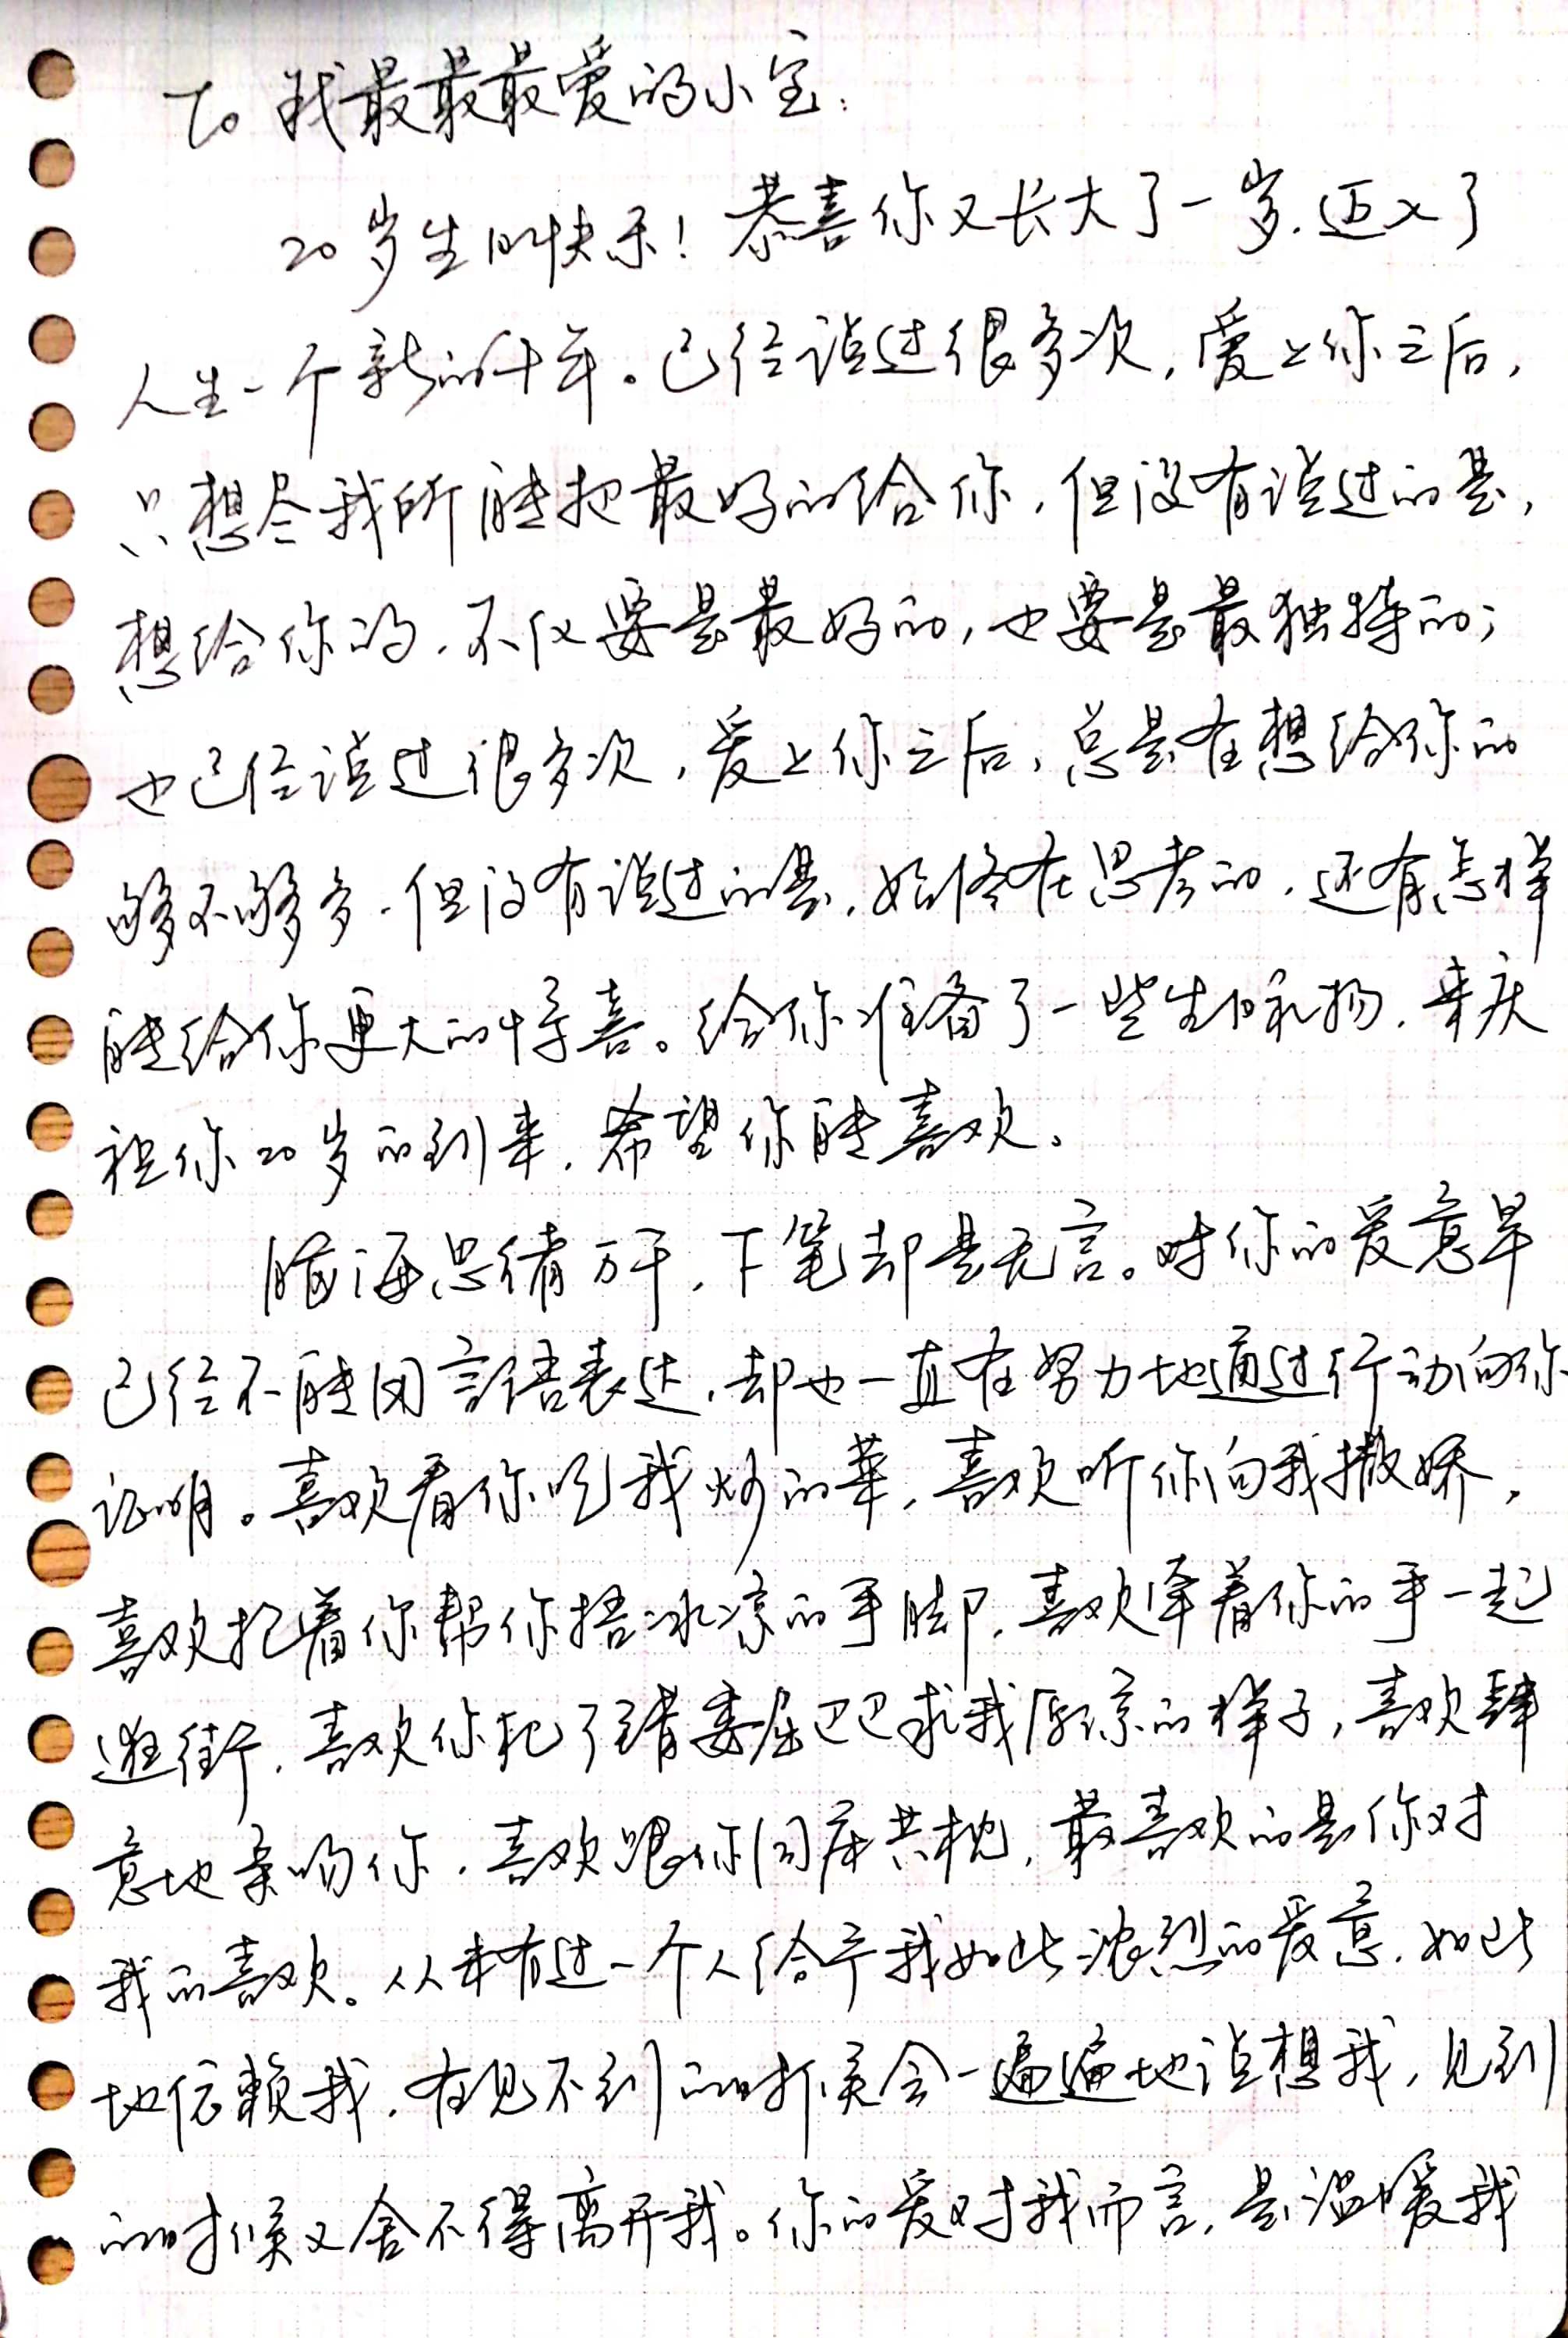 To 我最最最爱的小宝:
20岁生日快乐！恭喜你又长大了一岁，迈入了
人生一个新的十年。已经说过很多次，爱上你之后，
只想尽我所能把最好的给你，但没有说过的是，
想给你的，不仅要是最好的，也要是最独特的；
也已经说过很多次，爱上你之后，总是在想给你的
够不够多，但没有说过的是，始终在思考的，还有怎样
能给你更大的惊喜。给你准备了一些生日礼物，来庆
祝你20岁的到来，希望你能喜欢。
脑海思绪万千，下笔却是无言。对你的爱意早
已经不能用言语表达，却也一直在努力地通过行动向你
证明。喜欢看你吃我炒的菜，喜欢听你向我撒娇，
喜欢抱着你帮你捂冰凉的手脚，喜欢牵着你的手一起
逛街，喜欢你犯了错委屈巴巴求我原谅的样子，喜欢肆
意地亲吻你，喜欢跟你同床共枕，最喜欢的是你对
我的喜欢。从未有过一个人给予我如此浓烈的爱意，如此
地信赖我，在见不到的时候会一遍遍地说想我，见到
的时候又舍不得离开我。你的爱对我而言，是温暖我